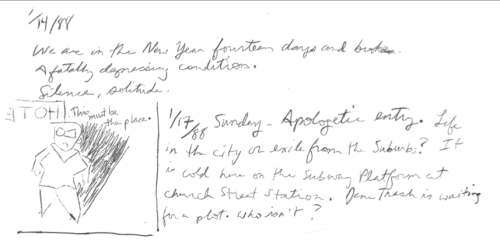 1/14/88
We are in the New Year fourteen days and broke.
A fatally depressing condition.
Silence, solitude.
HOTE
This must be
the place.
1/17/88 Sunday - Apologetic entry. Life
in the city or exile from the Suburbs? It
is cold here on the Subway Platform at
Church Street Station. Jane Trash is waiting
for a plot. Who isn't?